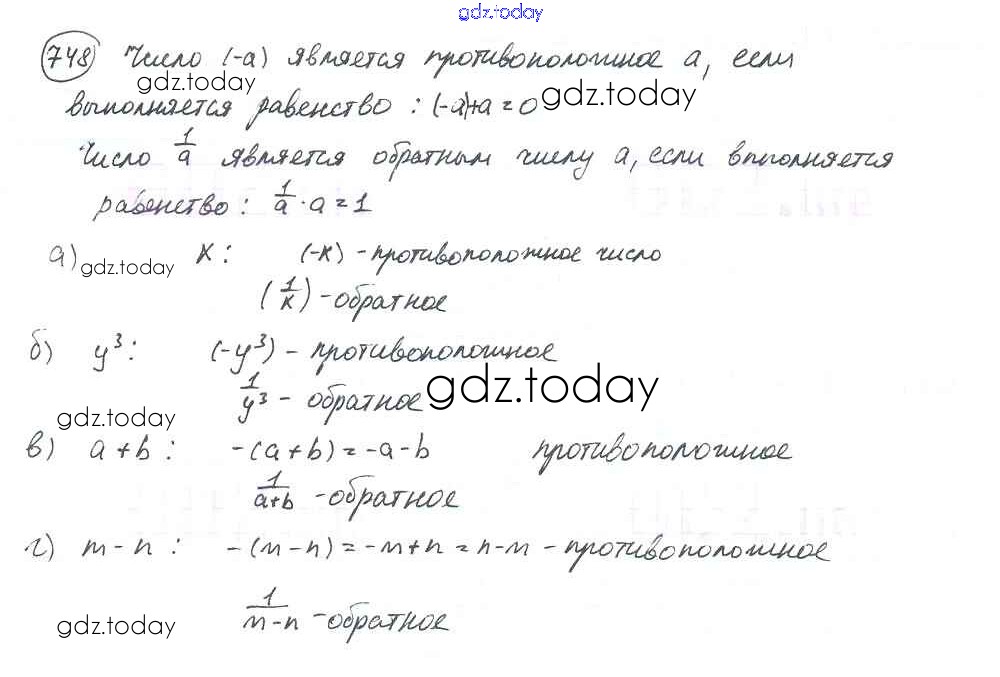 gdz.today
748 Число (-a) является противоположное a, если
gdz.today
выполняется равенство : (-a)+a = 0 gdz.today
Число 1/a является обратным числу a, если выполняется
равенство : 1/a · a = 1
а) gdz.today к : (-к) - противоположное число
(1/к) - обратное
б) y³ : (-y³) - противоположное
1/y³ - обратное gdz.today
gdz.today
в) a + b : -(a + b) = -a - b противоположное
1/a+b - обратное
г) m - n : -(m - n) = -m + n = n - m - противоположное
gdz.today 1/m-n - обратное